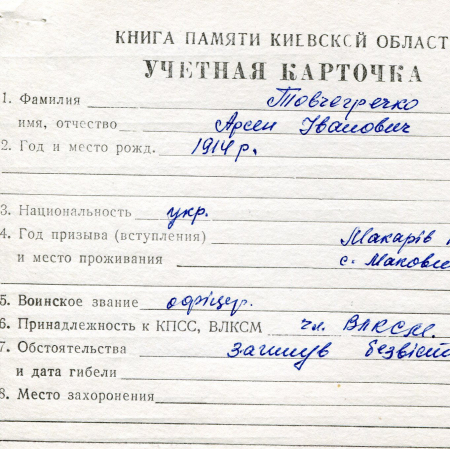 КНИГА ПАМЯТИ КИЕВСКОЙ ОБЛАСТ
УЧЕТНАЯ КАРТОЧКА
1. Фамилия Товчегречко
имя, отчество Арсен Іванович
2. Год и место рожд. 1914 р.
3. Национальность укр.
4. Год призыва (вступления) Макарів
и место проживания с.
5. Воинское звание офіцер.
6. Принадлежность к КПСС, ВЛКСМ чл. ВЛКСМ.
7. Обстоятельства загинув безвіст
и дата гибели
8. Место захоронения